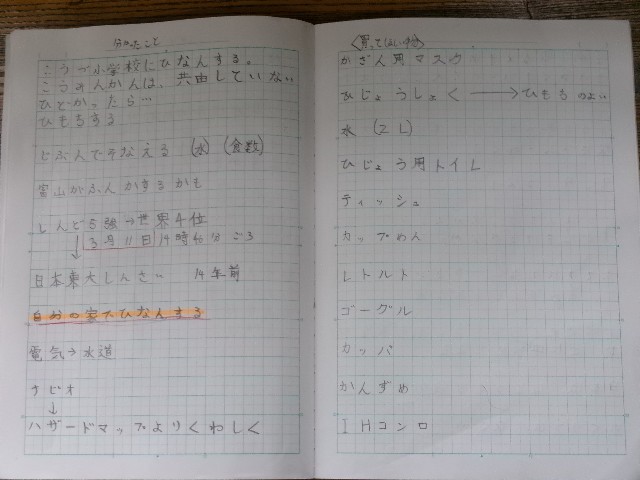 分かったこと
こうづ小学校にひなんする。
こうきょうかんは、共由していない
ひとかったら…
ひもちする
じぶんでそなえる (水) (食数)
富山がふんかするかも
しんど5強→世界4位
↓ 3月11日 14時46分ごろ
日本東大しんさい 14年前
自分の家へひなんする
電気→水道
ナビオ
↓
ハザードマップよりくわしく
〈買ってほしい物〉
かざん用マスク
ひじょうしょく → ひもちのよい
水 (2L)
ひじょう用トイレ
ティッシュ
カップめん
レトルト
ゴーグル
カッパ
かんずめ
IHコンロ